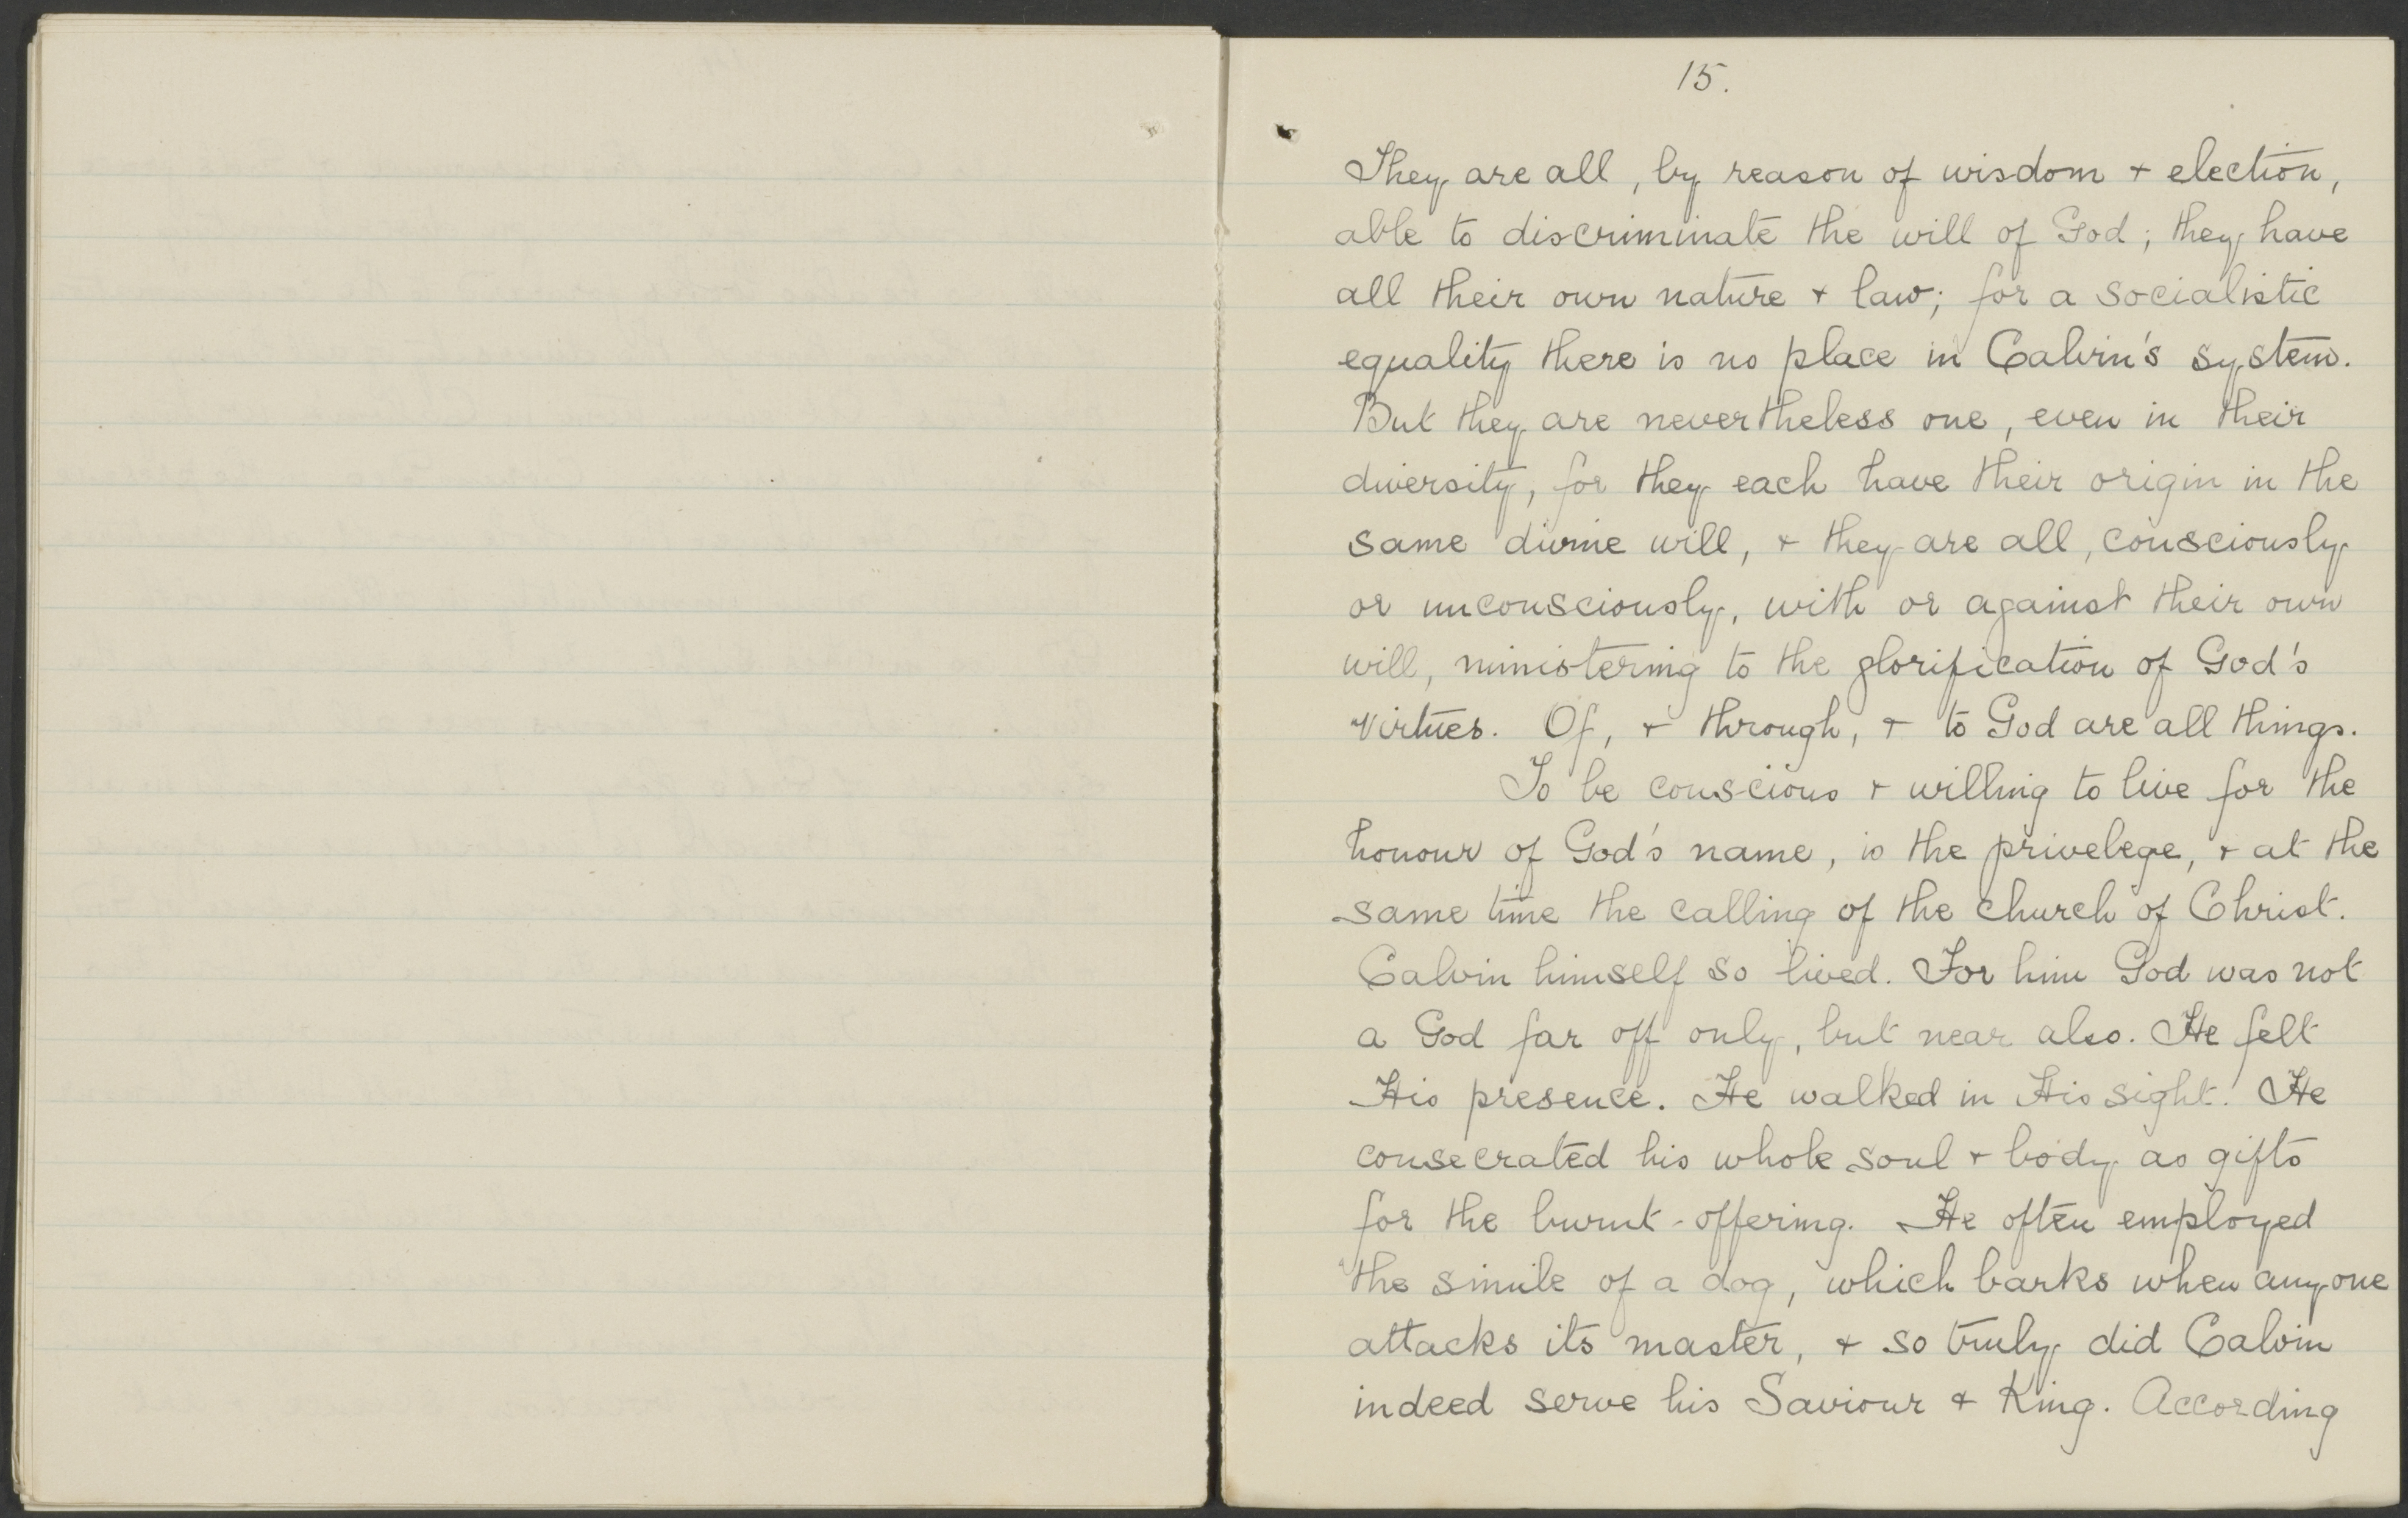 15.
They are all, by reason of wisdom + election,
able to discriminate the will of God; they have
all their own nature + law; for a socialistic
equality there is no place in Calvin's system.
But they are nevertheless one, even in their
diversity, for they each have their origin in the
same divine will, + they are all, consciously
or unconsciously, with or against their own
will, ministering to the glorification of God's
virtues. Of, + through, + to God are all things.
To be conscious + willing to live for the
honour of God's name, is the privelege, + at the
same time the calling of the church of Christ.
Calvin himself so lived. For him God was not
a God far off only, but near also. He felt
His presence. He walked in His sight. He
consecrated his whole soul + body as gifts
for the burnt-offering. He often employed
the simile of a dog, which barks when anyone
attacks its master, + so truly did Calvin
indeed serve his Saviour + King. According